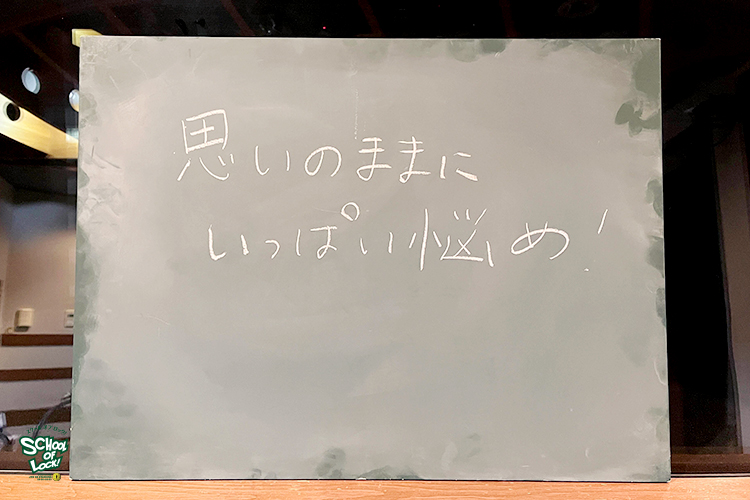 思いのままに
いっぱい悩め!
SCHOOL
OF
LOCK!